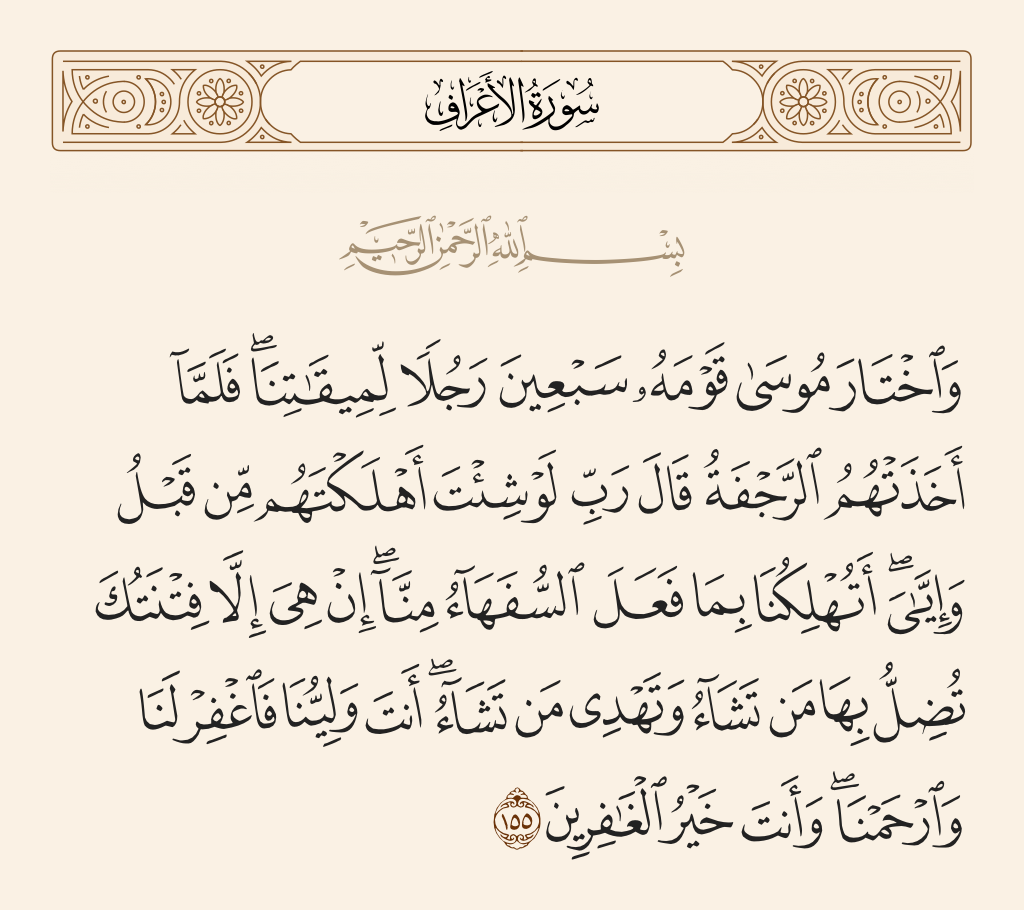 سُورَةُ الأَعْرَافِ
بِسْمِ ٱللَّهِ ٱلرَّحْمَٰنِ ٱلرَّحِيمِ
وَٱخْتَارَ مُوسَىٰ قَوْمَهُۥ سَبْعِينَ رَجُلًا لِّمِيقَٰتِنَا ۖ فَلَمَّآ
أَخَذَتْهُمُ ٱلرَّجْفَةُ قَالَ رَبِّ لَوْ شِئْتَ أَهْلَكْتَهُم مِّن قَبْلُ
وَإِيَّٰىَ ۖ أَتُهْلِكُنَا بِمَا فَعَلَ ٱلسُّفَهَآءُ مِنَّآ ۖ إِنْ هِىَ إِلَّا فِتْنَتُكَ
تُضِلُّ بِهَا مَن تَشَآءُ وَتَهْدِى مَن تَشَآءُ ۖ أَنتَ وَلِيُّنَا فَٱغْفِرْ لَنَا
وَٱرْحَمْنَا ۖ وَأَنتَ خَيْرُ ٱلْغَٰفِرِينَ ١٥٥